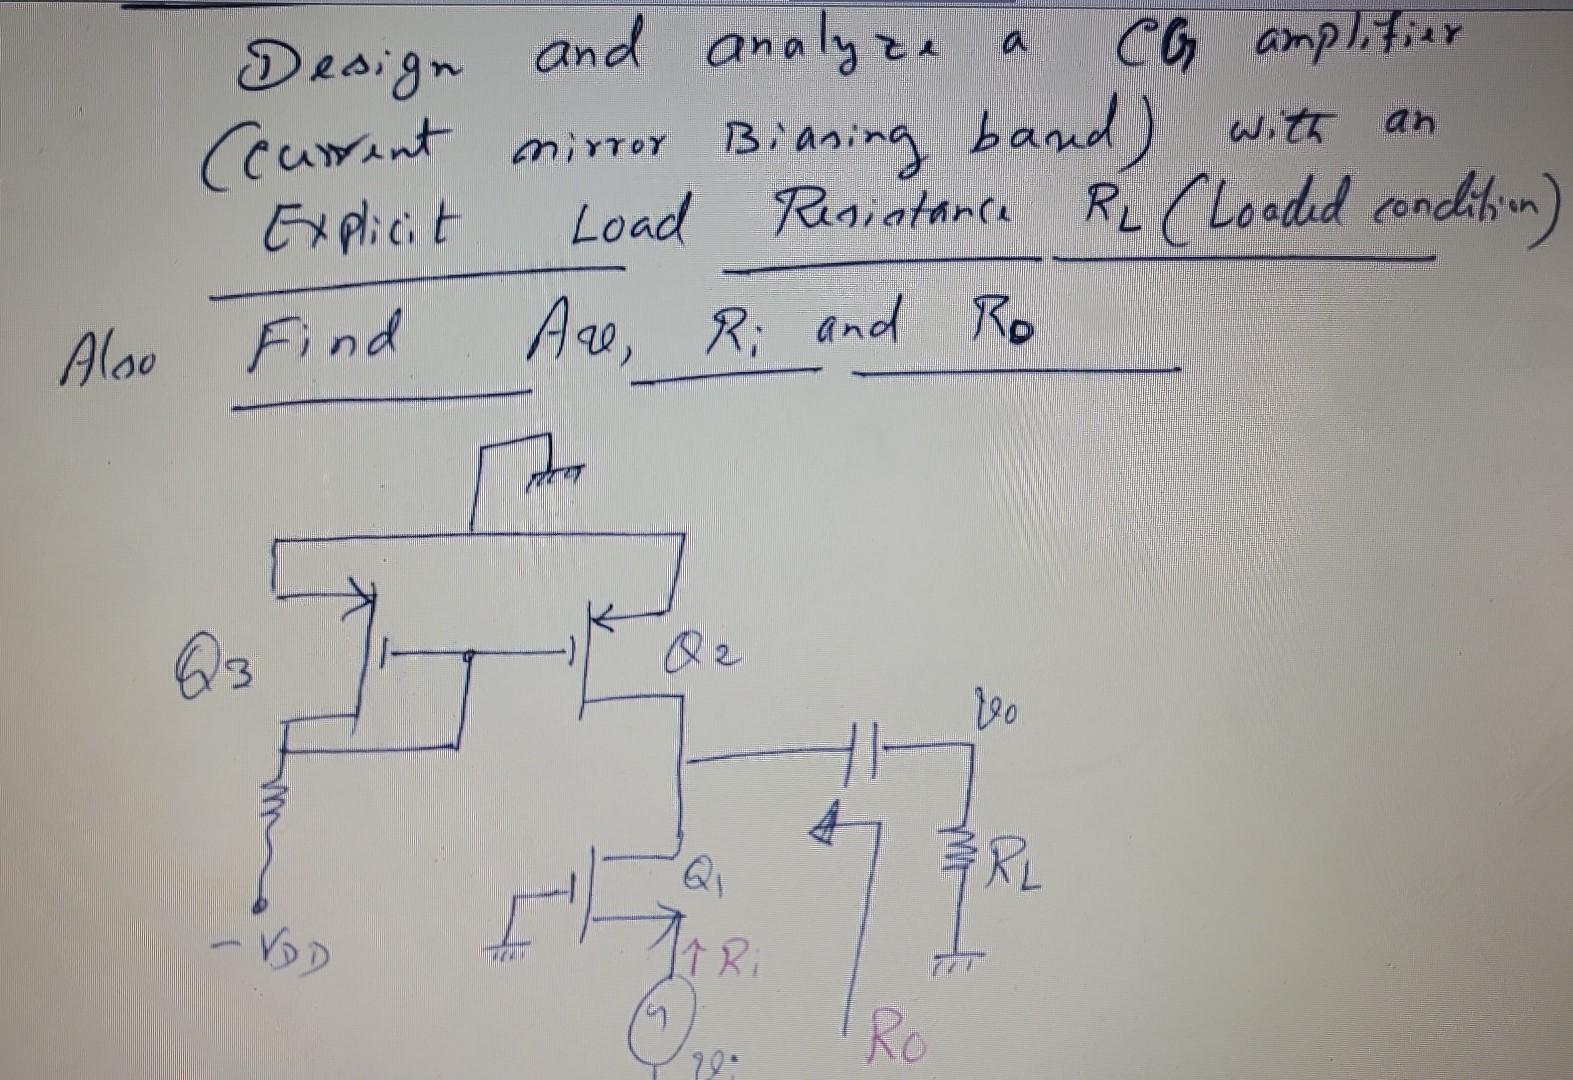 Design and analyze a CG amplifier
(current mirror Biasing band) with an
Explicit Load Resistance RL (Loaded condition)
Also Find Av, Ri and Ro
Q3
Q2
vo
Q1
RL
-VDD
Ri
vi
Ro